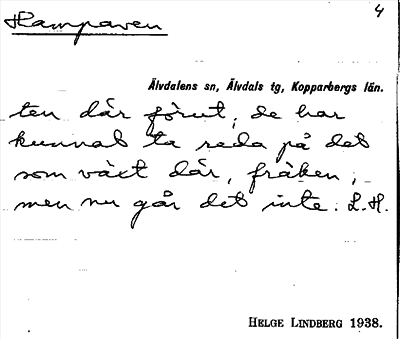 Hampaven
4
Älvdalens sn, Älvdals tg, Kopparbergs län.
ten där förut, de har
kunnat ta reda på det
som växt där, fräken,
men nu går det inte. L.H.
HELGE LINDBERG 1938.